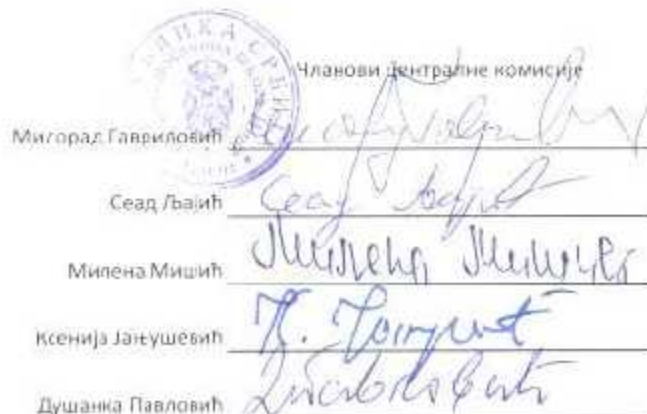 РЕПУБЛИКА СРБИЈА
Чланови централне комисије
Милорад Гавриловић
Сеад Љајић Сеад Љајић
Милена Мишић Милена Мишић
Ксенија Јањушевић
Душанка Павловић